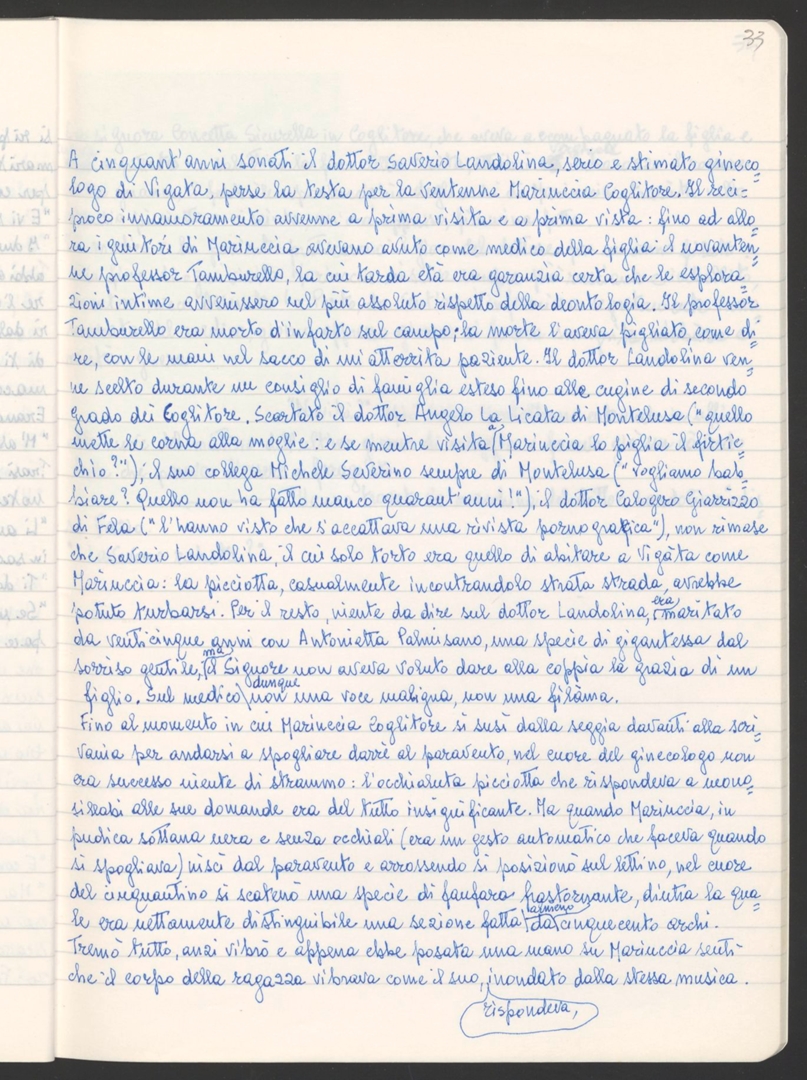 33
A cinquant'anni sonati il dottor Saverio Landolina, serio e stimato gineco=
logo di Vigata, perse la testa per la ventenne Mariuccia Coglitore. Il reci=
proco innamoramento avvenne a prima visita e a prima vista: fino ad allo=
ra i genitori di Mariuccia avevano avuto come medico della figlia il novanten=
ne professor Tamburello, la cui tarda età era garanzia certa che le esplora=
zioni intime avvenissero nel più assoluto rispetto della deontologia. Il professor
Tamburello era morto d'infarto sul campo: la morte l'aveva pigliato, come di=
re, con le mani nel sacco di un'atterrita paziente. Il dottor Landolina ven=
ne scelto durante un consiglio di famiglia esteso fino alle cugine di secondo
grado dei Coglitore. Scartato il dottor Angelo La Licata di Montelusa ("quello
mette le corna alla moglie: e se mentre visita a Mariuccia lo piglia il firtic=
chio?"), il suo collega Michele Severino sempre di Montelusa ("vogliamo bab=
biare? Quello non ha fatto manco quarant'anni!"), il dottor Calogero Giarrizzo
di Fela ("l'hanno visto che s'accattava una rivista pornografica"), non rimase
che Saverio Landolina, il cui solo torto era quello di abitare a Vigàta come
Mariuccia: la picciotta, casualmente incontrandolo strata strada, avrebbe
potuto turbarsi. Per il resto, niente da dire sul dottor Landolina, era maritato
da venticinque anni con Antonietta Palmisano, una specie di gigantessa dal
sorriso gentile, ma il Signore non aveva voluto dare alla coppia la grazia di un
figlio. Sul medico dunque non una voce maligna, non una filàma.
Fino al momento in cui Mariuccia Coglitore si susì dalla seggia davanti alla scri=
vania per andarsi a spogliare darrè al paravento, nel cuore del ginecologo non
era successo niente di strammo: l'occhialuta picciotta che rispondeva a mono=
sillabi alle sue domande era del tutto insignificante. Ma quando Mariuccia, in
pudica sottana nera e senza occhiali (era un gesto automatico che faceva quando
si spogliava) niscì dal paravento e arrossendo si posizionò sul lettino, nel cuore
del cinquantino si scatenò una specie di fanfara frastornante, dintra la qua=
le era nettamente distinguibile una sezione fatta da almeno cinquecento archi.
Tremò tutto, anzi vibrò e appena ebbe posata una mano su Mariuccia sentì
che il corpo della ragazza vibrava come il suo, rispondeva, inondato dalla stessa musica.